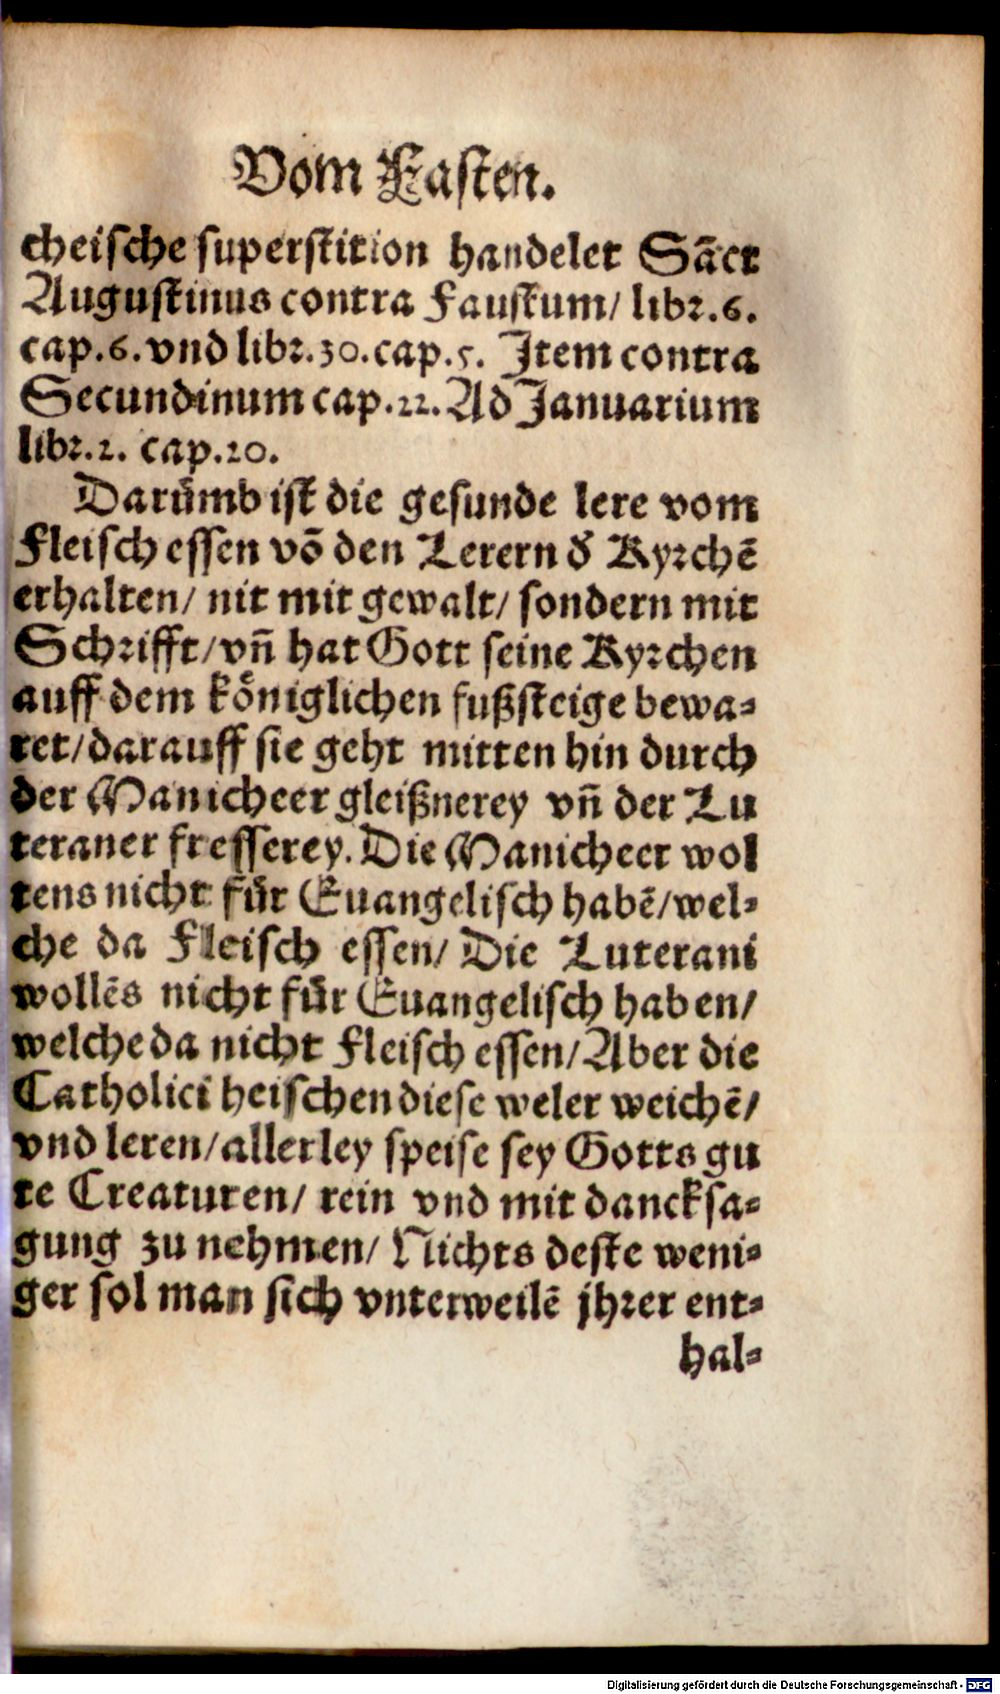 Vom Fasten.
cheische superstition handelet Sãct
Augustinus contra Faustum/ libr.6.
cap.6.vnd libr.30.cap.5. Item contra
Secundinum cap.22. Ad Januarium
libr.2. cap.20.
Darümb ist die gesunde lere vom
Fleisch essen võ den Lerern d̕ Kyrchẽ
erhalten/ nit mit gewalt/ sondern mit
Schrifft/ vñ hat Gott seine Kyrchen
auff dem königlichen fußsteige bewa-
ret/ darauff sie geht mitten hin durch
der Manicheer gleißnerey vñ der Lu
teraner fresserey. Die Manicheer wol
tens nicht für Euangelisch habẽ/ wel-
che da Fleisch essen/ Die Luterani
wollẽs nicht für Euangelisch haben/
welche da nicht Fleisch essen/ Aber die
Catholici heischen diese weler weichẽ/
vnd leren/ allerley speise sey Gotts gu
te Creaturen/ rein vnd mit dancksa-
gung zu nehmen/ Nichts deste weni-
ger sol man sich vnterweilẽ jhrer ent-
hal-
Digitalisierung gefördert durch die Deutsche Forschungsgemeinschaft - DFG